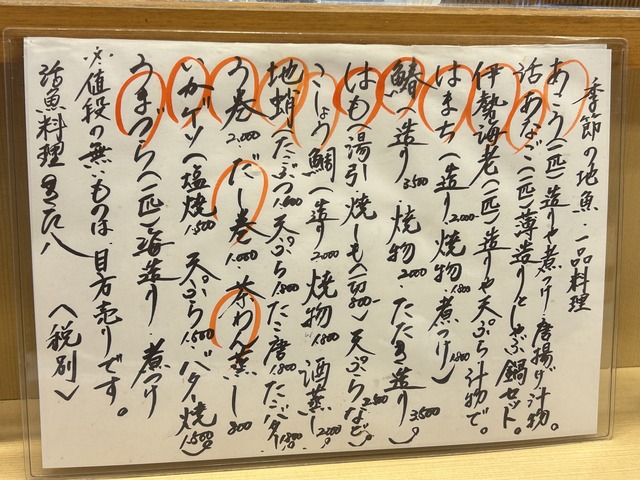 季節の地魚・一品料理
あこう(一匹)造りや煮つけ・唐揚げ・汁物。
活あなご(一匹)薄造りとしゃぶ鍋セット。
伊勢海老(一匹)造りや天ぷら・汁物で。
はまち(造り2,000焼物1,800煮つけ1,800)
鰆(造り3,500・焼物2,000・たたき造り3,500)
はも(湯引・焼しも(一切800)天ぷらなど)2,500
こしょう鯛(造り2,000焼物1,800酒蒸し2,000)
地蛸(たこぶつ1,600天ぷら1,800たこ唐1,800たこバター1,800)
う巻2,000だし巻1,000茶わん蒸し800
いかゲソ(塩焼1,500天ぷら1,500・バター焼1,500)
うまづら(一匹)海造り・煮つけ
※値段の無いものは、目方売りです。
活魚料理 (税別)